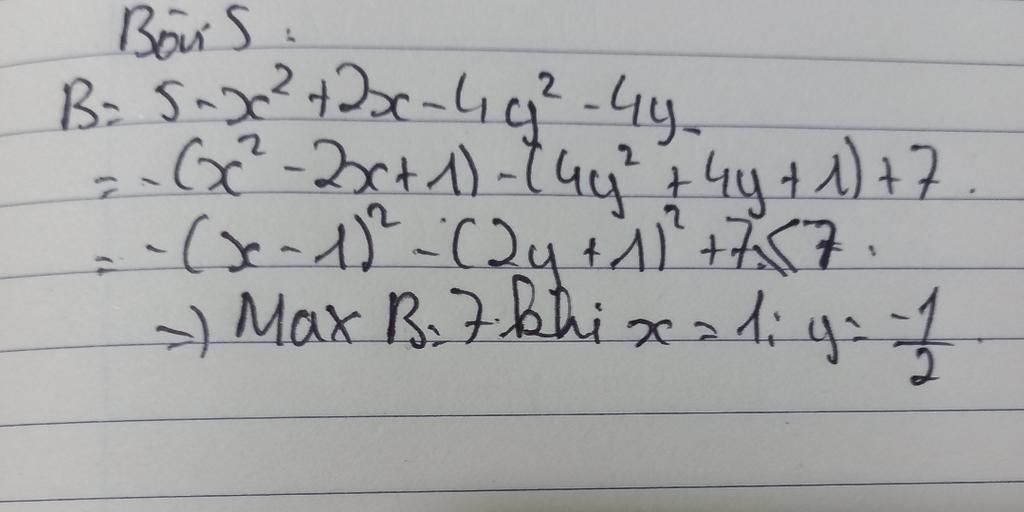 Bài 5:
B = 5 - x² + 2x - 4y² - 4y
= -(x² - 2x + 1) - (4y² + 4y + 1) + 7.
= -(x - 1)² - (2y + 1)² + 7 ≤ 7.
=> Max B = 7 khi x = 1; y = -1/2.